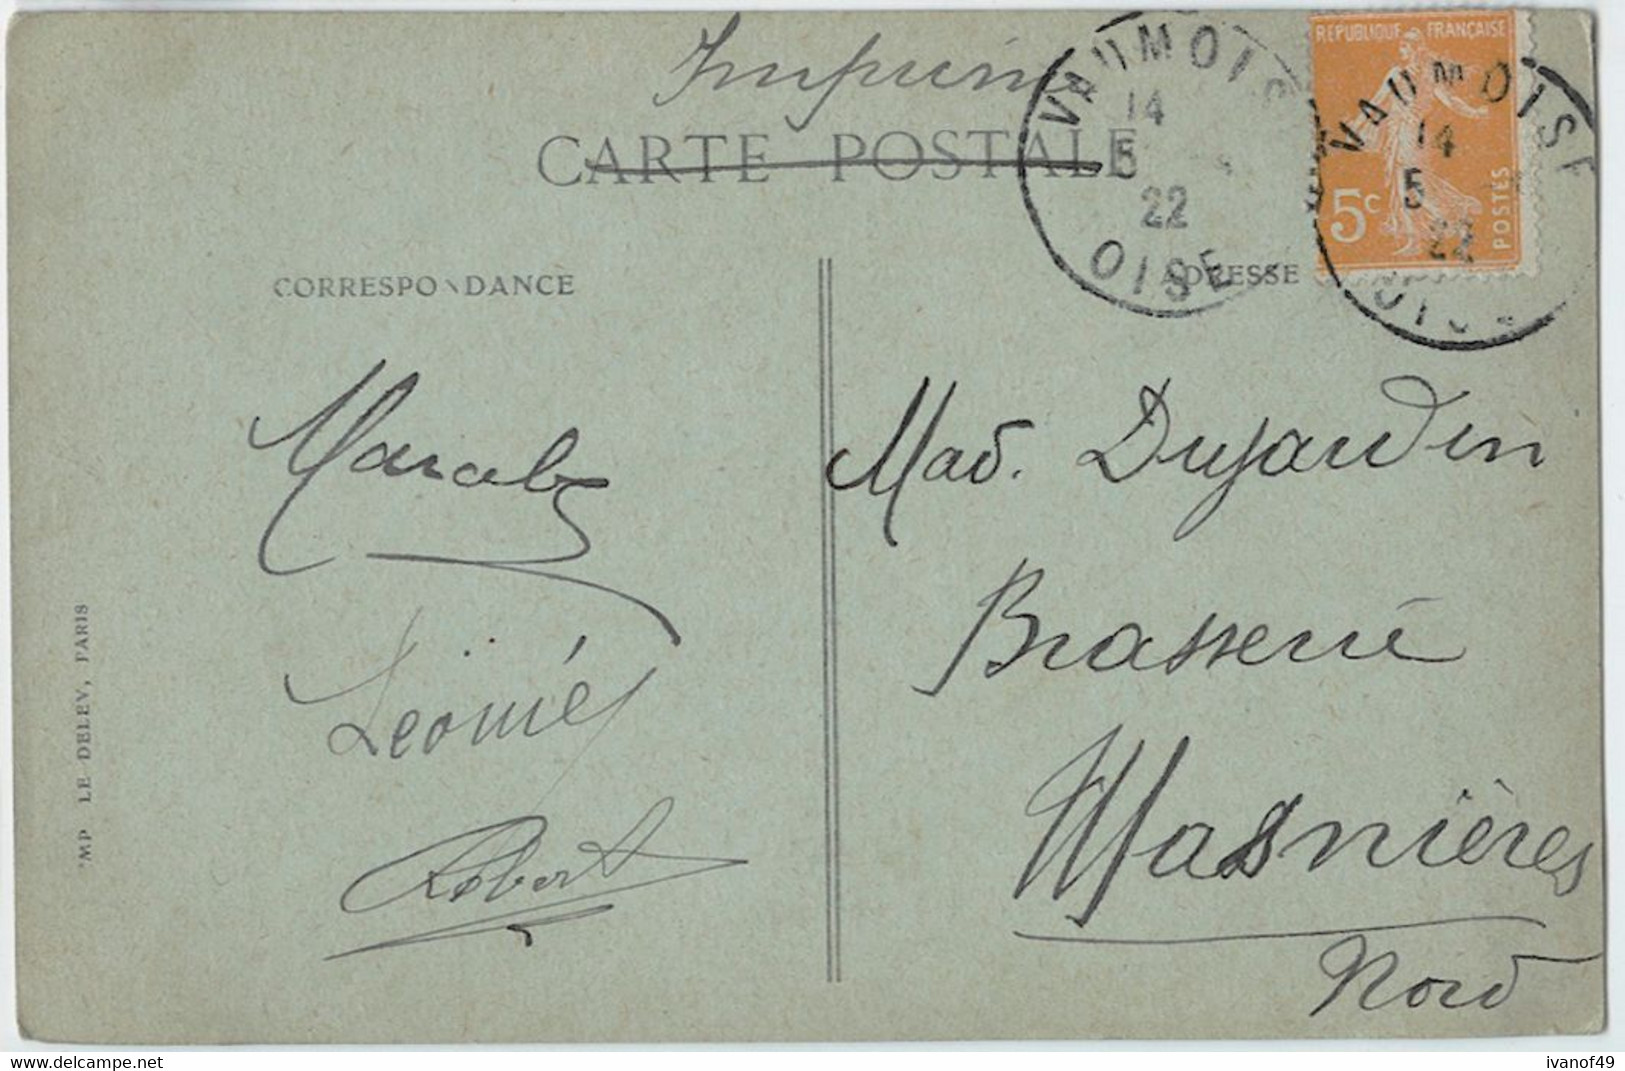 Imprimé
CARTE POSTALE
VAUMOISE
14
5
22
OISE
RÉPUBLIQUE FRANÇAISE
5c
POSTES
VAUMOISE
14
5
22
OISE
CORRESPONDANCE
ADRESSE
Léonie
Robert
Mad. Dujardin
Brasserie
Masnières
Nord
IMP LE DELEY, PARIS
https://www.delcampe.net
ivanof49